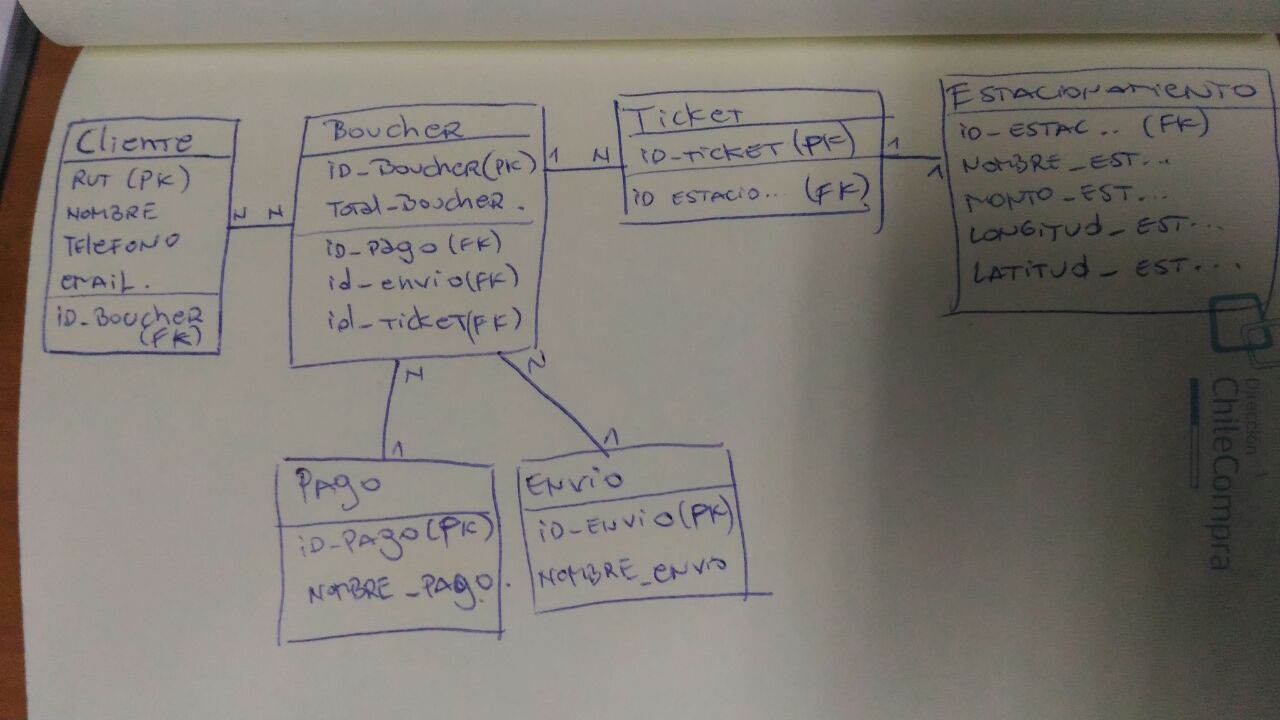 Cliente
RUT (PK)
NOMBRE
TELEFONO
EMAIL.
ID_Boucher
(FK)
N N
Boucher
ID_Boucher(PK)
Total_Boucher.
ID_Pago (FK)
id_envio(FK)
id_ticket(FK)
1 N
Ticket
ID_TICKET (PK)
ID ESTACIO... (FK)
1 1
ESTACIONAMIENTO
ID_ESTAC.. (FK)
NOMBRE_EST...
MONTO_EST...
LONGITUD_EST...
LATITUD_EST....
N 1
N 1
Pago
ID_PAGO(PK)
NOMBRE_PAGO.
ENVIO
ID_ENVIO(PK)
NOMBRE_ENVIO
Dirección
ChileCompra